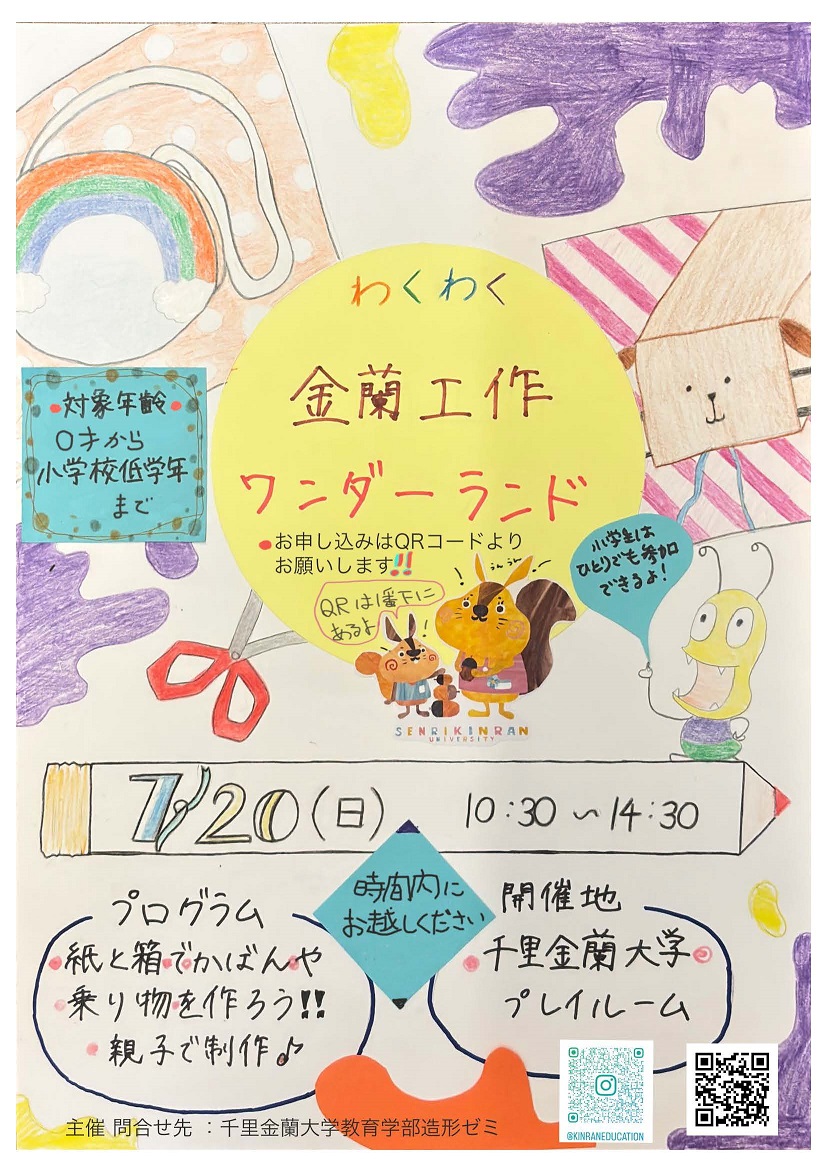 わくわく
金蘭工作
ワンダーランド
•お申し込みはQRコードより
お願いします!!
対象年齢
0才から
小学校低学年
まで
QRは1番下に
あるよ
うんうん
小学生は
ひとりでも参加
できるよ!
SENRIKINRAN
UNIVERSITY
7/20(日) 10:30〜14:30
時間内に
お越しください
プログラム
•紙と箱でかばんや
乗り物を作ろう!!
親子で制作♪
開催地
千里金蘭大学
プレイルーム
@KINRANEDUCATION
主催 問合せ先 :千里金蘭大学教育学部造形ゼミ